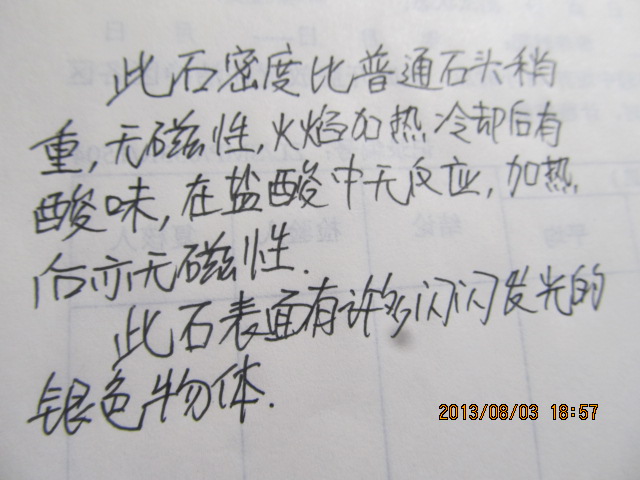 此石密度比普通石头稍
重,无磁性,火焰加热冷却后有
酸味,在盐酸中无反应,加热
后亦无磁性.
此石表面有许多闪闪发光的
银色物体.
2013/08/03 18:57